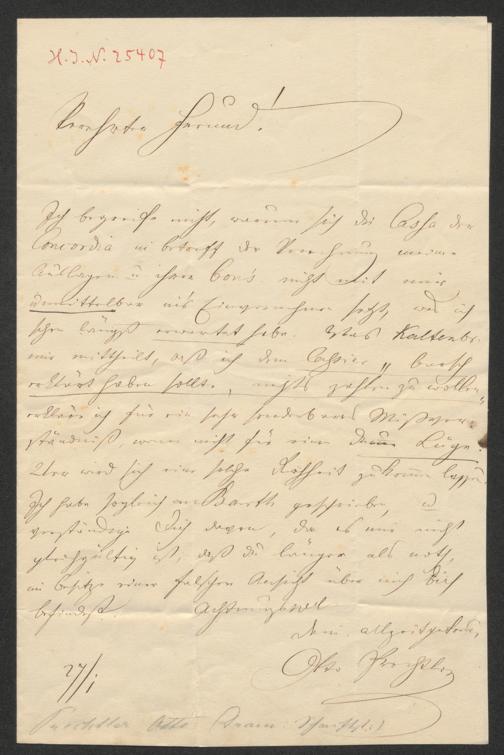 H.I.N. 25407
Verehrter Freund!
Ich begreife nicht, warum sich die Cassa der
Concordia in betreff der Verrechnung meiner
Auslagen u ihrer Bon's nicht mit mir
unmittelbar ins Einvernehmen setzt, was ich
schon längst erwartet habe. Was Kaltenb.
mir mittheilt, daß ich dem Cassier „barsch
erklärt haben sollte, nichts zahlen zu wollen“
erkläre ich für ein sehr sonderbares Mißver-
ständniß, wenn nicht für eine Lüge.
wird sich eine solche Rohheit zu kommen lassen.
Ich habe sogleich an Barth geschrieben, u
verständige Dich davon, da es mir nicht
gleichgültig ist, daß du länger als noth,
im Besitze einer falschen Ansicht über mich Dich
befindest. Achtungsvoll
Dein allzeit getreuer
Otto Prechtler
27/1
Prechtler Otto Dram. Schriftst.